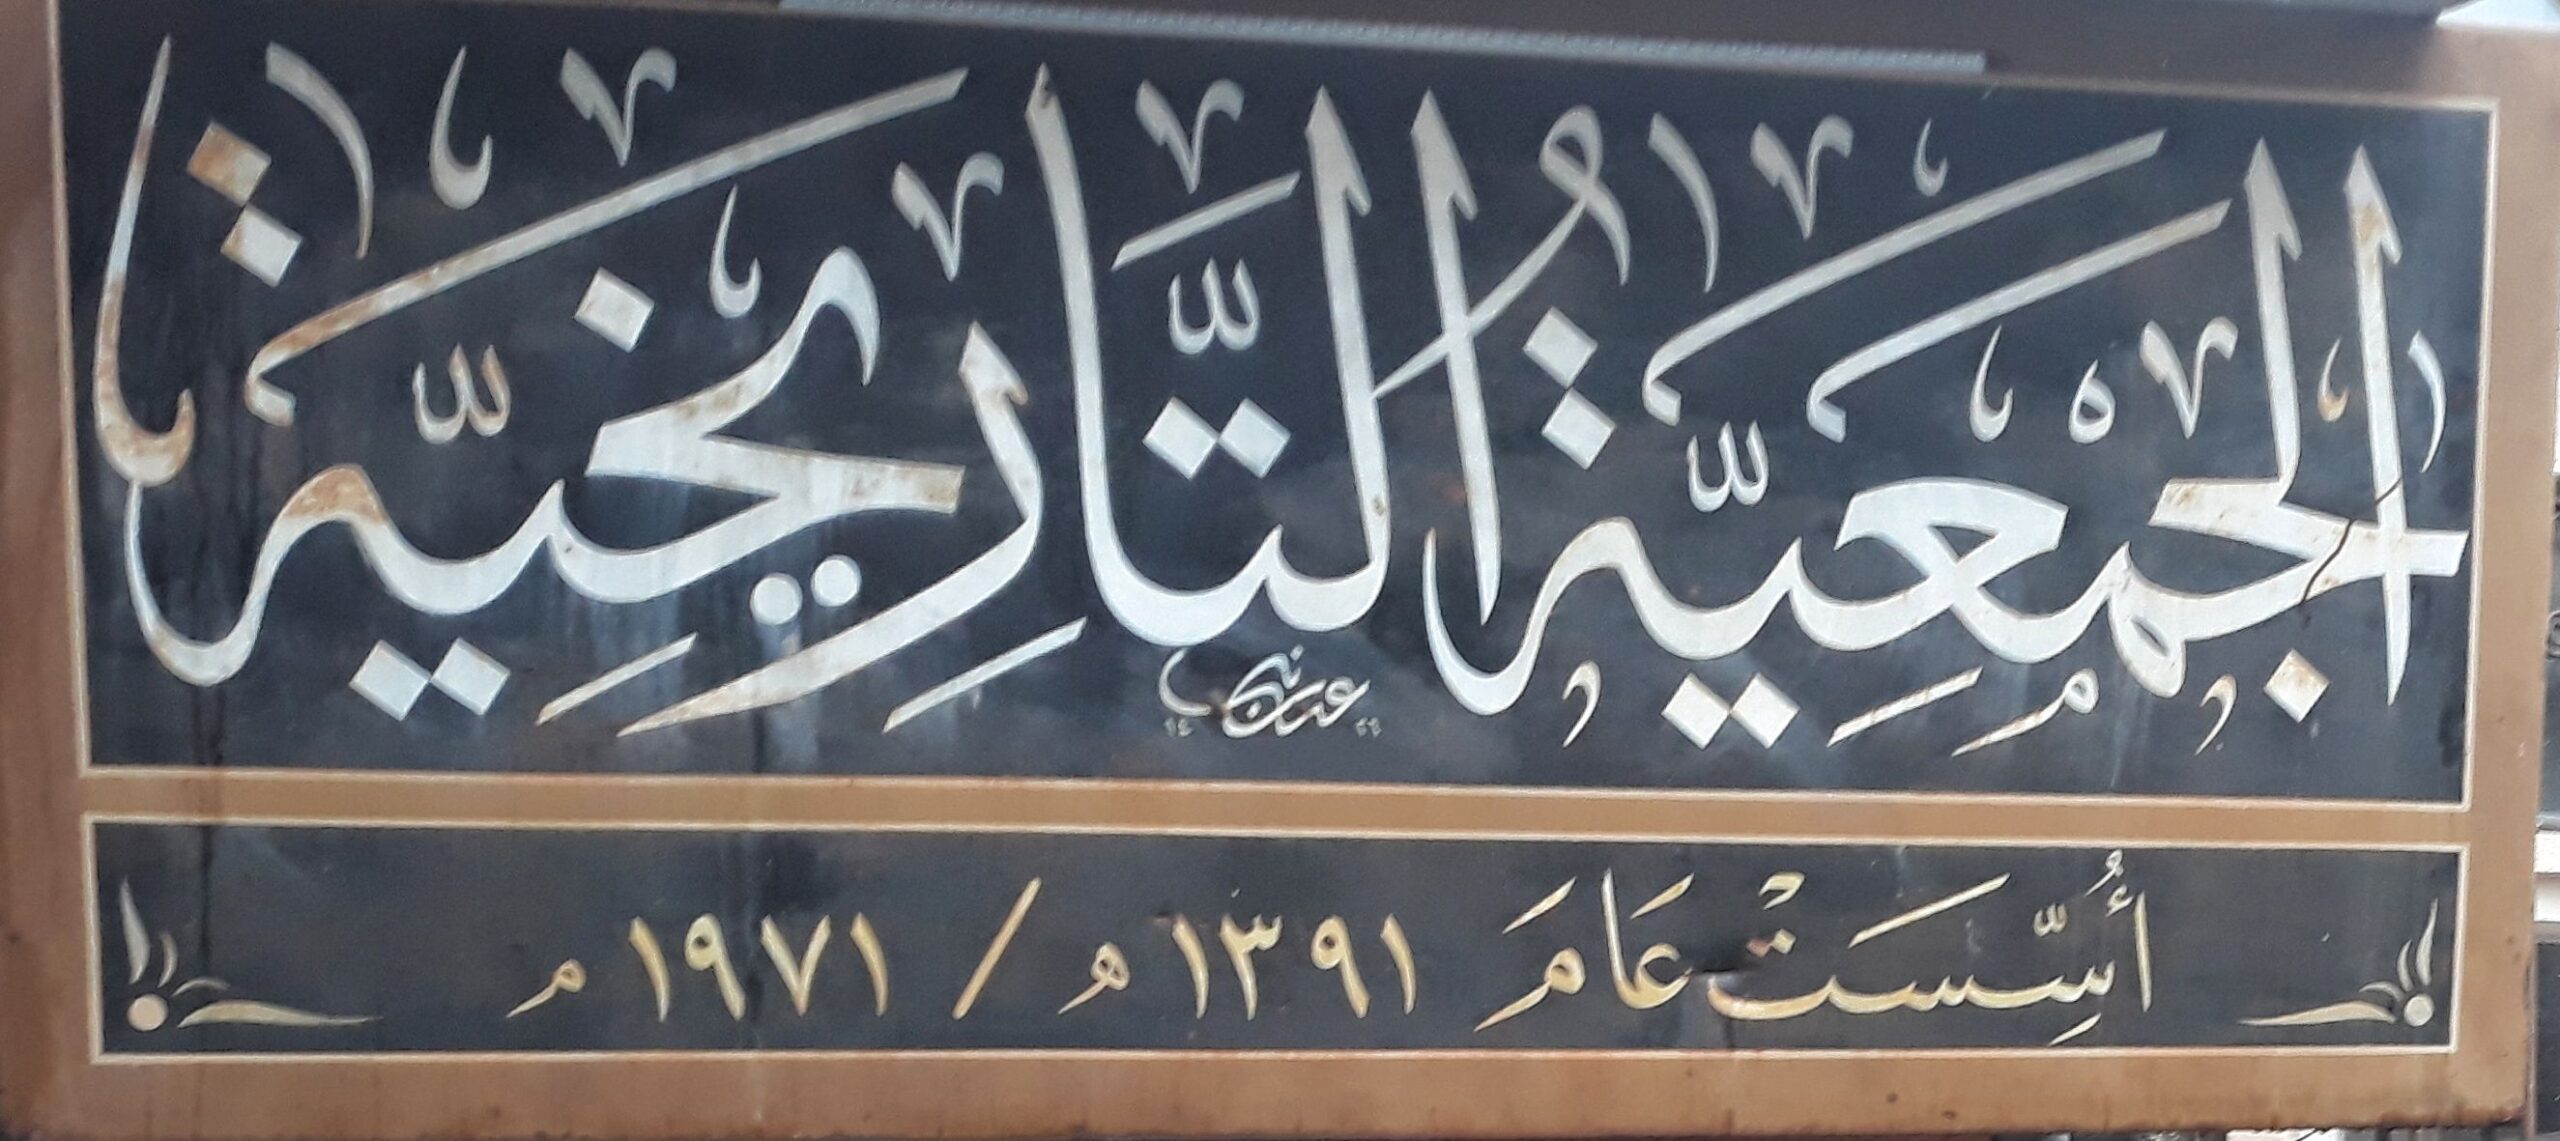 الجَمْعِيَّةُ التَّارِيخِيَّة
أُسِّسَتْ عَامَ ١٣٩١ ه / ١٩٧١ م